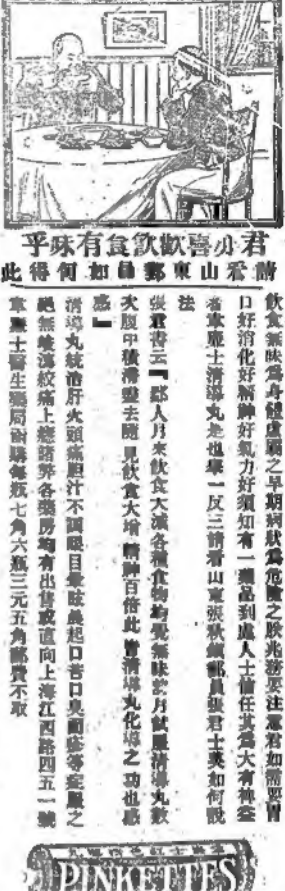 君亦喜歡飲食有味乎
請看山東鄭員如何得此
飲食無味爲身體虛弱之早期病狀爲危險之朕兆務要注意君如需要胃
口好消化好精神好氣力好須知有一藥品到處人士信任其爲大有裨益
者韋廉士清導丸是也舉一反三請看山東張秋鎮郵員張君士英如何說
法
張君書云『鄙人月來飲食大減各種食物均覺無味於月試服清導丸數
次腹中積滯盡去隨見飲食大增精神百倍此皆清導丸化導之功也感
感』
清導丸統治肝火頭痛胆汁不調眼目暈眩晨起口苦口臭面疹等症服之
絕無峻瀉絞痛上瘾諸弊各藥房均有出售或直向上海江西路四五一號
韋廉士醫生藥局函購每瓶七角六瓶三元五角郵費不取
PINKETTES